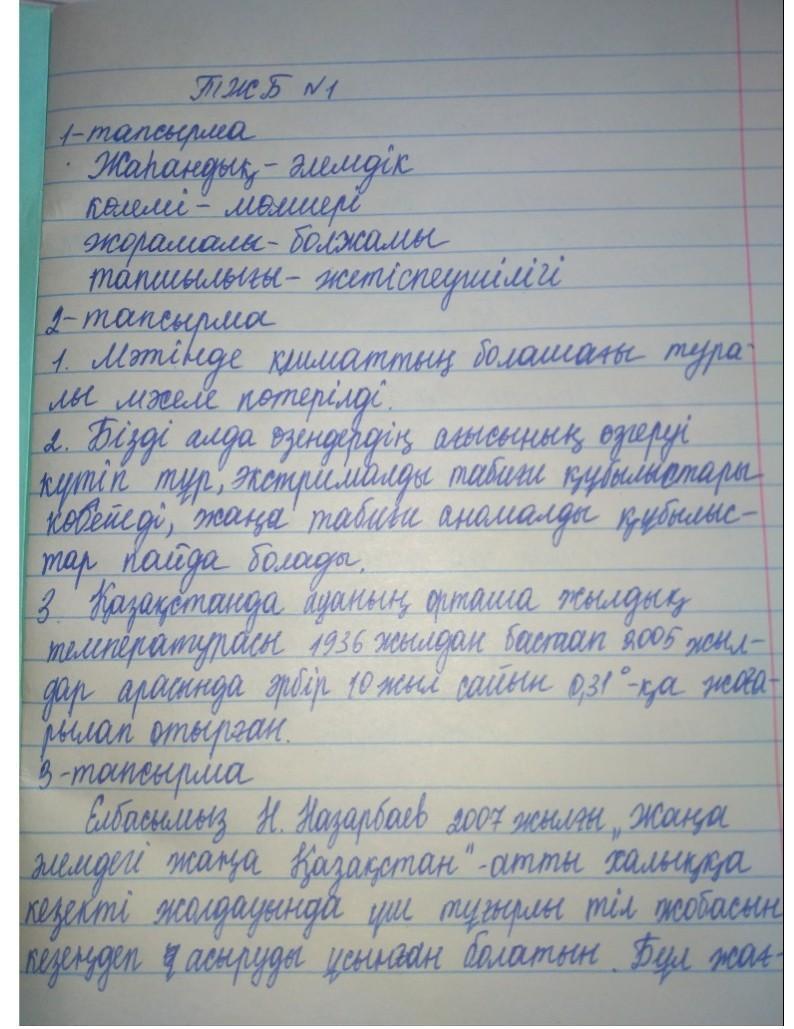 ТЖБ №1
1-тапсырма
Жаһандық - әлемдік
көлемі - мөлшері
жорамалы - болжамы
тапшылығы - жетіспеушілігі
2-тапсырма
1. Мәтінде климаттың болашағы тура-
лы мәселе көтерілді.
2. Бізді алда өзендердің ағысының өзгеруі
күтіп тұр, экстрималды табиғи құбылыстары
көбейеді, жаңа табиғи аномалды құбылыс-
тар пайда болады.
3. Қазақстанда ауаның орташа жылдық
температурасы 1936 жылдан бастап 2005 жыл-
дар арасында әрбір 10 жыл сайын 0,31°-қа жоға-
рылап отырған.
3-тапсырма
Елбасымыз Н. Назарбаев 2007 жылғы „Жаңа
әлемдегі жаңа Қазақстан"-атты халыққа
кезекті жолдауында үш тұғырлы тіл жобасын
кезеңдеп асыруды ұсынған болатын. Бұл жағ-